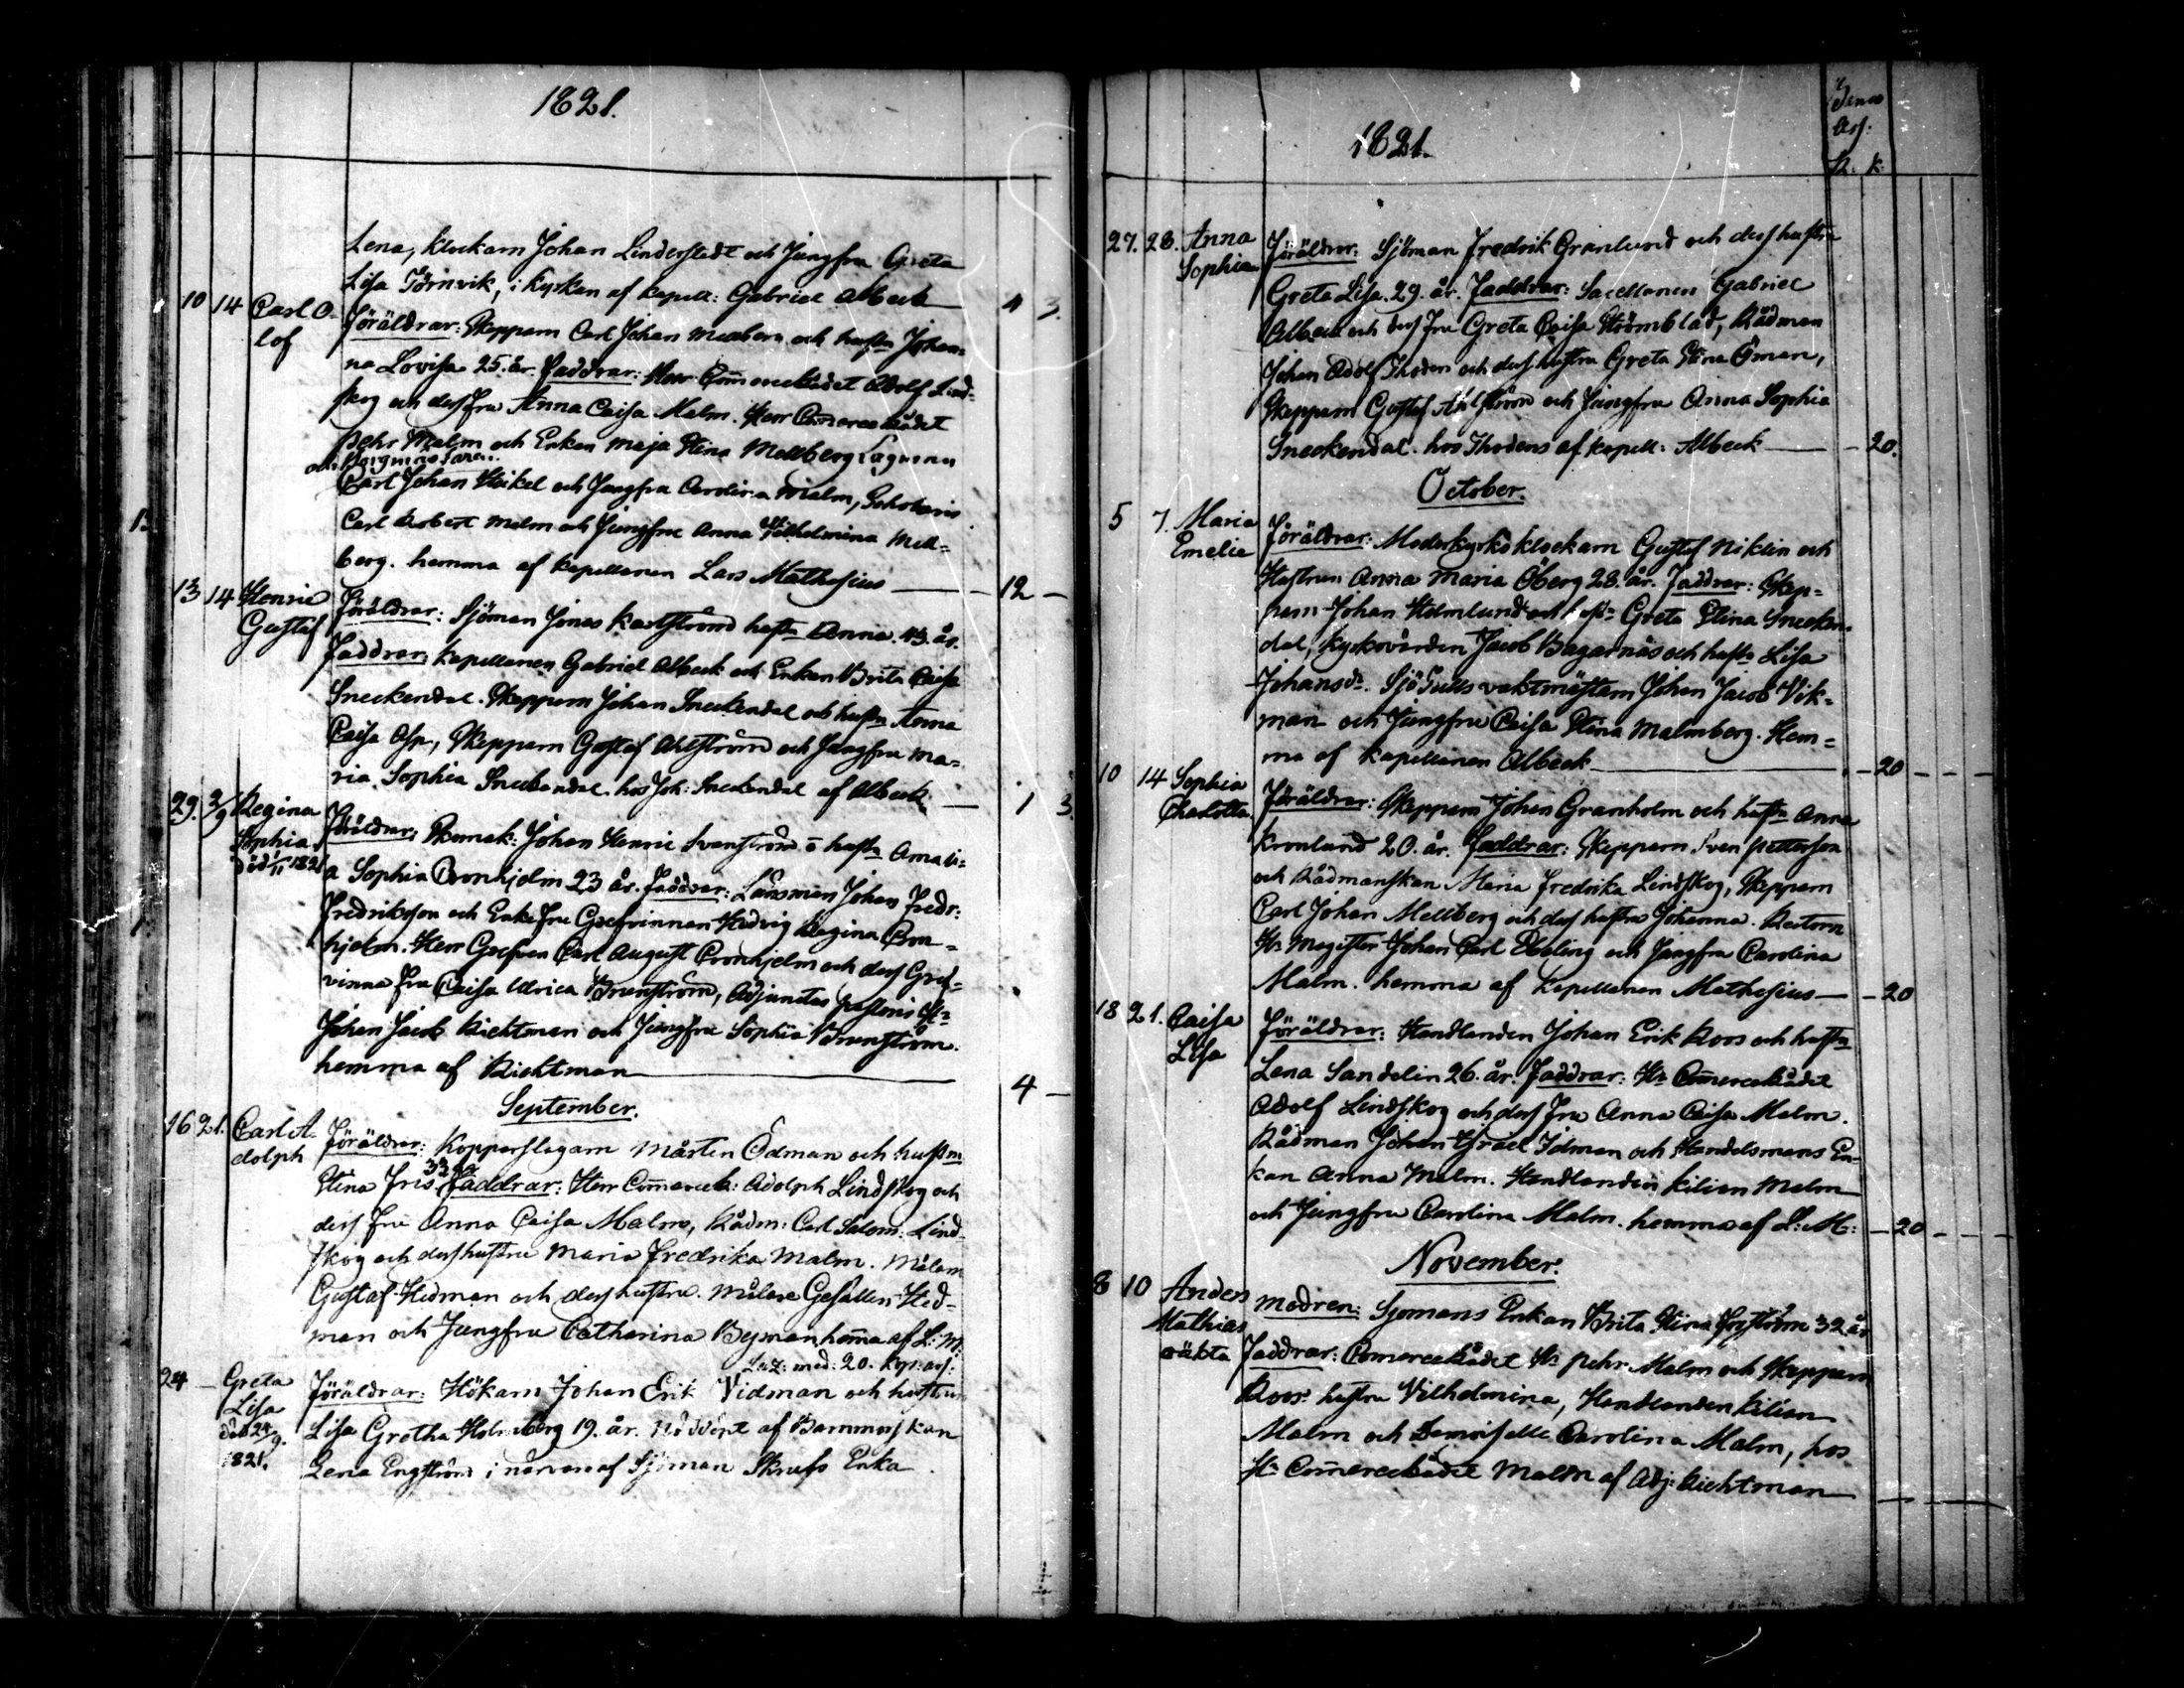 1821.
Lena, klockarn Johan Linderstedt och Jungfru Greta
Lisa Törnvik, i Kyrkan af Kapell: Gabriel Albeck — 4 3.
10 14 Carl O-
lof
Föräldrar: Skepparn Carl Johan Mellberg och hustn Johan-
na Lovisa 25. år. Faddrar: Herr Commercerådet Adolf Lind-
skog och dess fru Anna Caisa Malm. Herr Commercerådet
Pehr Malm och Enkan Maja Stina Mellberg Lagman
och Borgmästaren
Carl Johan Heikel och Jungfru Carolina Malm,
Carl Robert Malm och Jungfru Anna Vilhelmina Mell=
berg. hemma af Kapellanen Lars Mathesius — 12 —
13 14 Henric
Gustaf
Föräldrar: Sjöman Jonas Karlström hustr Anna. 43. år.
Faddrar: Kapellanen Gabriel Albeck och Enkan Brita Caisa
Sneckendal. Skepparn Johan Sneckendal och hustn Anna
Caisa Asp, Skepparn Gustaf Ahlström och Jungfru Ma=
ria Sophia Sneckendal. hos Joh: Sneckendal af Albeck — 1 3.
29. 2/9 Regina
Sophia
död 1/11 1821
Föräldrar: Skomak: Johan Henric Svenström o hustr Amali=
a Sophia Cronhjelm 23 år. Faddrar: Länsman Johan Fredr:
Fredriksson och Enke Fru Grefvinnan Hedvig Regina Cron=
hjelm. Herr Grefven Carl August Cronhjelm och dess Gref=
vinna Fru Caisa Ulrica Brunström, Adjunctus Pastoris Hr
Johan Jacob Richtman och Jungfru Sophia Brunström.
hemma af Richtman — 4 —
September.
16 21. Carl A-
dolph
Föräldrar: Kopparslagarn Mårten Ödman och hustrn
Stina Fris 33 år Faddrar: Herr Commercer: Adolph Lindskog och
dess Fru Anna Caisa Malm, Rådm: Carl Salom: Lind-
skog och dess hustru Maria Fredrika Malm. Målarn
Gustaf Hedman och dess hustru. Målare Gesällen Hed=
man och Jungfru Catharina Byman hema af L: M:
Laz: med: 20. kop: ass:
24 — Greta
Lisa
död 24/9.
1821.
Föräldrar: Hökarn Johan Erik Vidman och hustrun
Lisa Gretha Holmberg 19. år. Nöddöpt af Barnmorskan
Lena Engström i närvaro af Sjöman Skrufs Enka.
1821.
Ass:
R. K.
27. 28. Anna
Sophia
Föräldrar: Sjöman Fredrik Granlund och dess hustru
Greta Lisa. 29. år. Faddrar: Sacellanen Gabriel
Albeck och dess fru Greta Caisa Strömblad, Rådman
Johan Adolf Thoden och dess hustru Greta Stina Öman,
Skepparn Gustaf Ahlström och Jungfru Anna Sophia
Sneckendal. hos Thodens af Kapell: Albeck — 20.
October.
5 7. Maria
Emelie
Föräldrar: Moderkyrkoklockarn Gustaf Niklin och
Hustrun Anna Maria Öberg 28. år. Faddrar: Skep=
parn Johan Holmlund och hustr Greta Stina Snecken-
dal, Kyrkovärden Jacob Bagarnäs och hustr Lisa
Johansdr. Sjötullsvaktmästarn Johan Jacob Vik=
man och Jungfru Caisa Stina Malmberg. Hem=
ma af Kapellanen Albeck — 20 —
10 14 Sophia
Charlotta.
Föräldrar: Skepparn Johan Granholm och hustr Anna
Kronlund 20. år. Faddrar: Skepparn Sven Petterson
och Rådmanskan Maria Fredrika Lindskog, Skepparn
Carl Johan Mellberg och dess hustru Johanna. Rectorn
Hr Magister Johan Carl Ebeling och Jungfru Carolina
Malm. hemma af Kapellanen Mathesius — 20
18 21. Caisa
Lisa
Föräldrar: Handlanden Johan Erik Roos och hustr
Lena Sandelin 26. år. Faddrar: Hr Commercerådet
Adolf Lindskog och dess Fru Anna Caisa Malm.
Rådman Johan Israel Idman och Handelsmans En-
kan Anna Malm. Handlanden Kilian Malm
och Jungfru Carolina Malm. hemma af L: M: — 20 —
November.
8 10 Anders
Mathias
oäkta
Modren: Sjomans Enkan Brita Stina 32 år
Faddrar: Comercerådet Hr Pehr Malm och Skepparn
Roos. hustru Vilhelmina, Handlanden Kilian
Malm och Demoiselle Carolina Malm, hos
Hr Commercerådet Malm af Adj: Richtman —